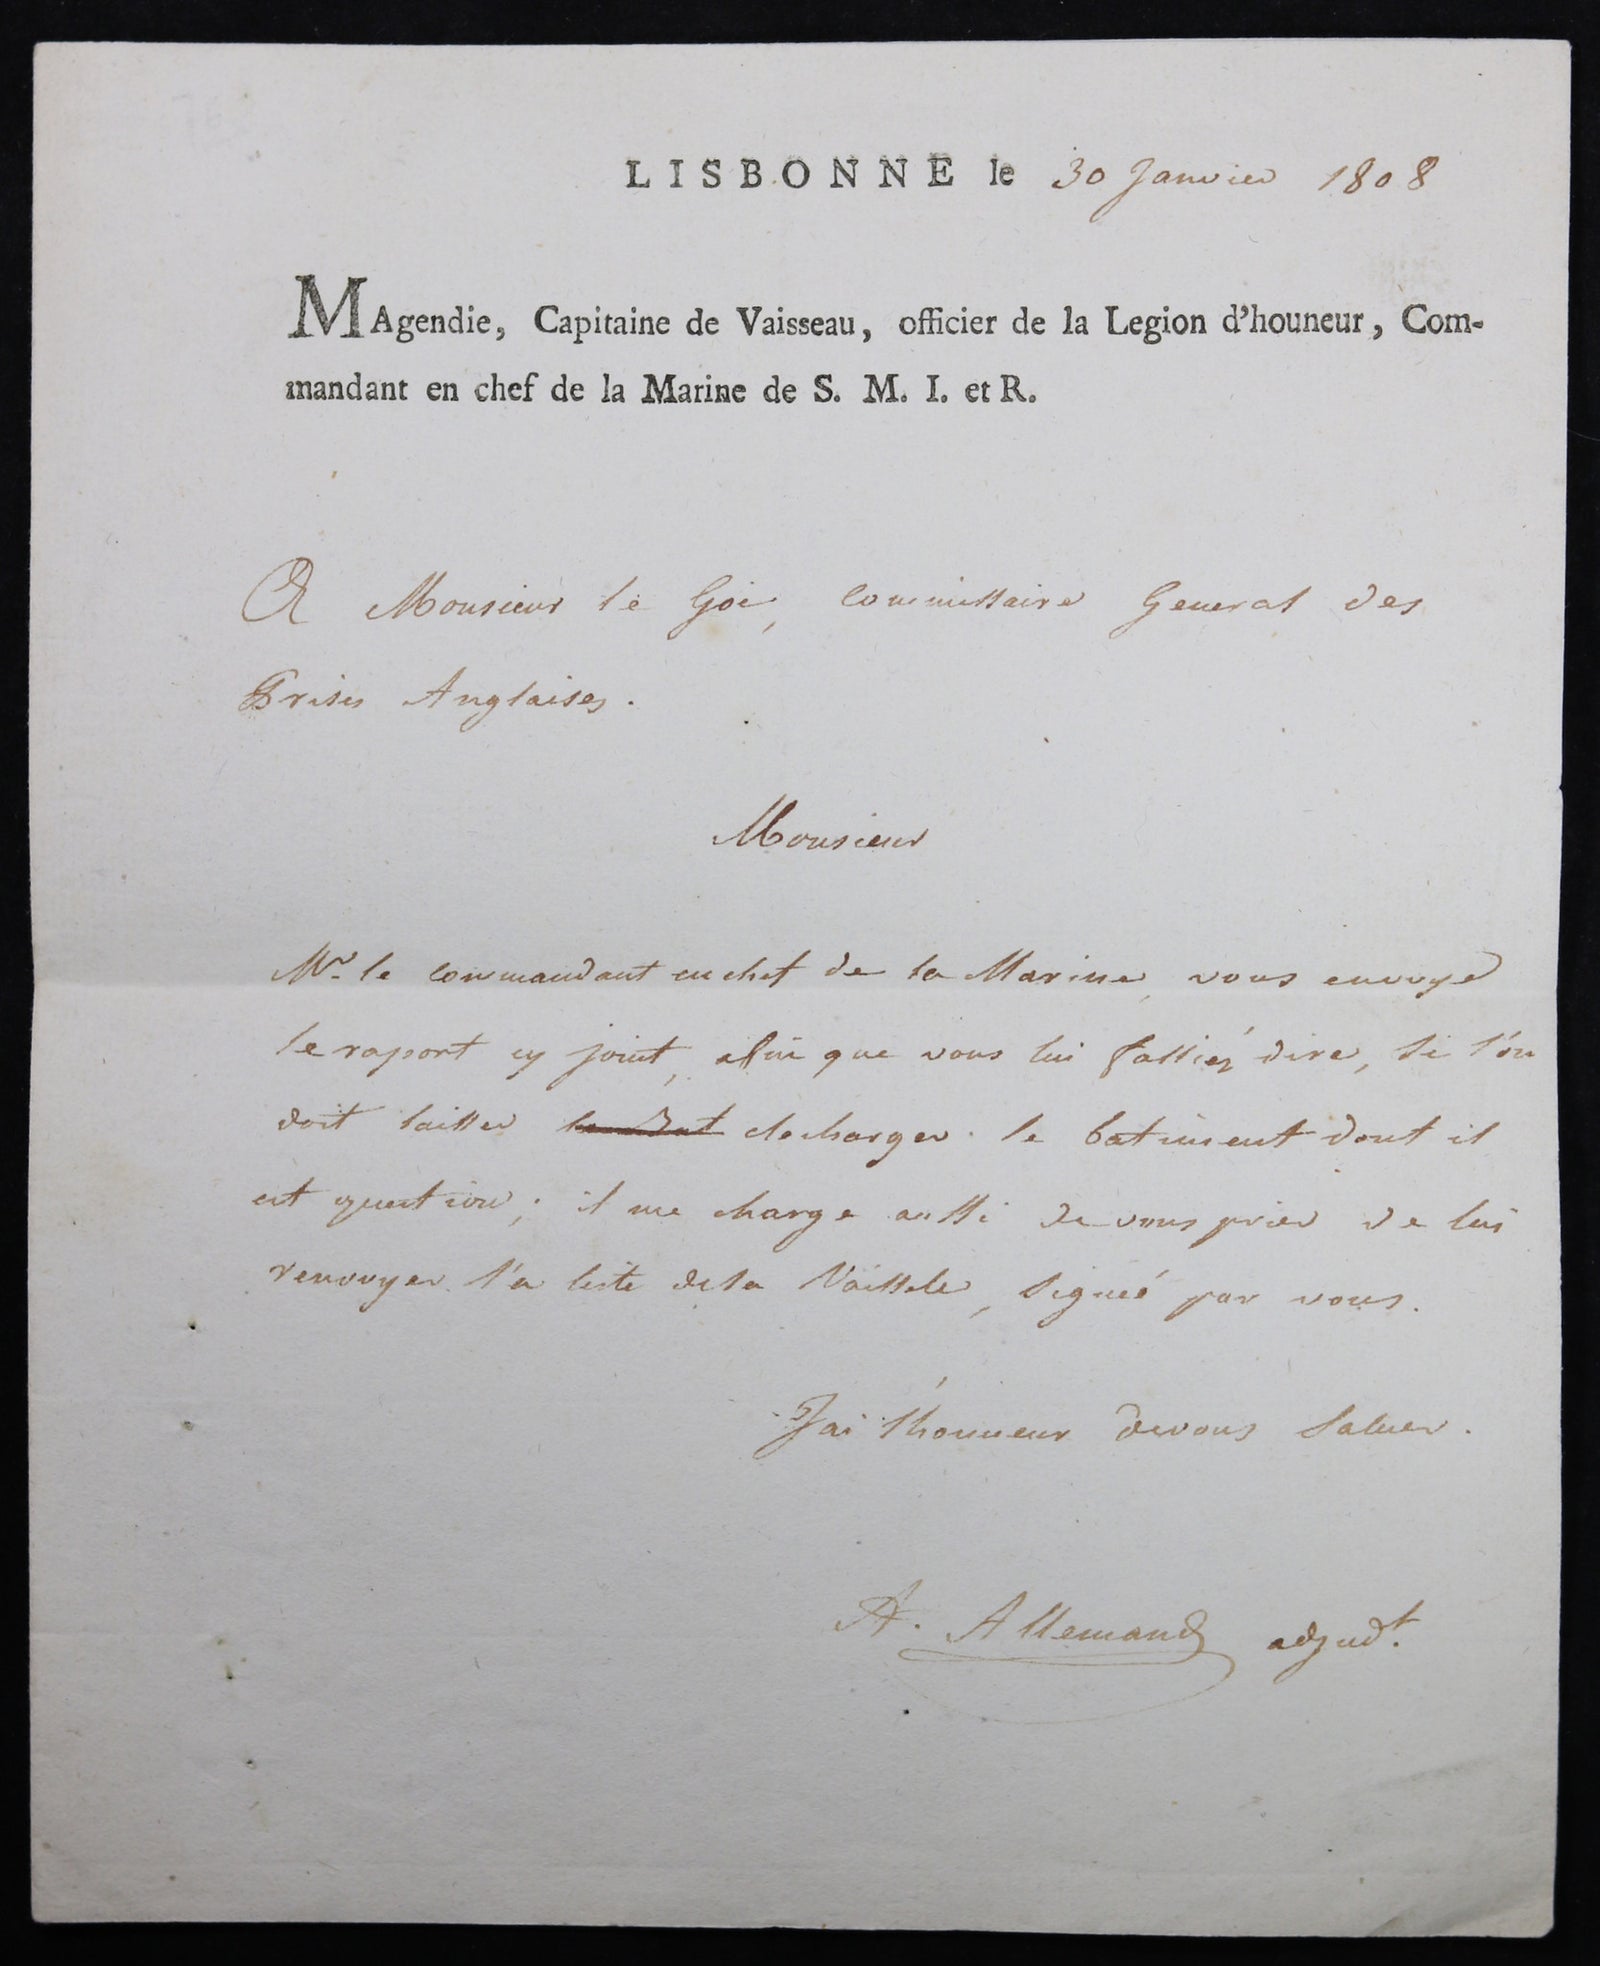 LISBONNE le 30 Janvier 1808
MAgendie, Capitaine de Vaisseau, officier de la Legion d'houneur, Com-
mandant en chef de la Marine de S. M. I. et R.
A Monsieur le Goi, Commissaire General des
Prises Anglaises.
Monsieur
Mr. le commandant en chef de la Marine, vous envoye
le raport cy joint, afin que vous lui fassiez dire, si l'on
doit laisser decharger le batiment dont il
est question; il me charge aussi de vous prier de lui
renvoyer l'a liste de la Vaisselle, signée par vous.
J'ai l'honneur de vous saluer.
A. Allemand adjudt.